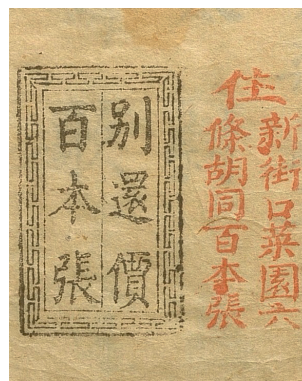 住
新街口菜園六
條胡同百本張
别還價
百本張